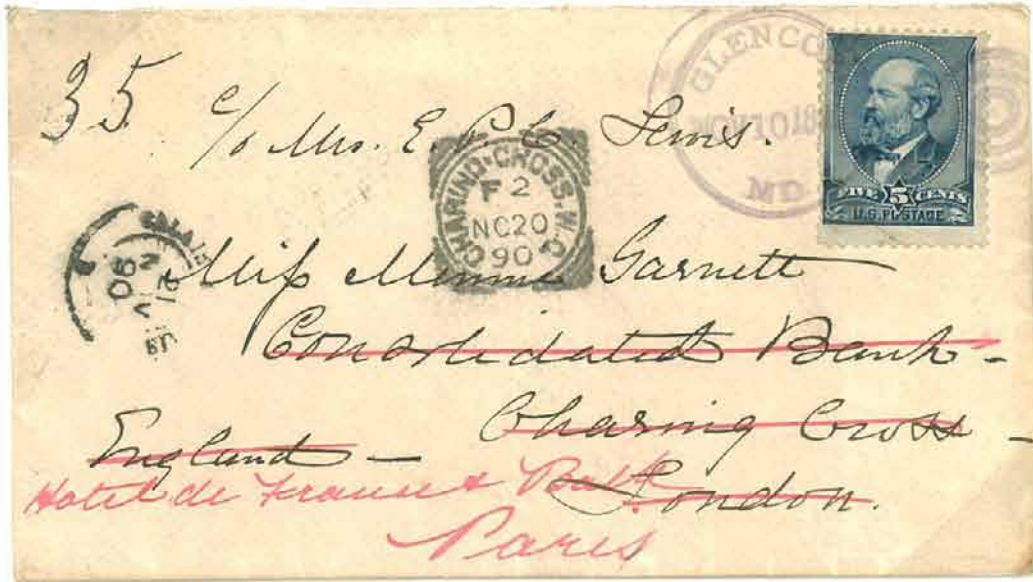 35
c/o Mrs. E. P. C. Lewis.
GLENCO
NOV 10 18
MD
FIVE 5 CENTS
U.S. POSTAGE
CHARING-CROSS.W.C.
F 2
NO20
90
CALAIS
21
90
Miss Minnie Garnett
Consolidated Bank-
Charing Cross-
England-
London.
Hotel de France &
Paris